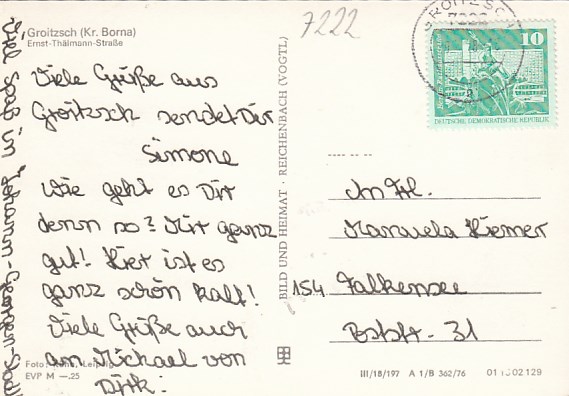 Groitzsch (Kr. Borna)
Ernst-Thälmann-Straße
Viele Grüße aus
Groitzsch sendet Dir
Simone
Wie geht es Dir
denn so? Mir ganz
gut! Hier ist es
ganz schön kalt!
Viele Grüße auch
an Michael von
Dirk.
Viel Spaß in Johann-Georgen-
Foto: Leipzig
EVP M —.25
BILD UND HEIMAT · REICHENBACH (VOGTL)
7222
GROITZSCH
7222
10
DEUTSCHE DEMOKRATISCHE REPUBLIK
An Frl.
Manuela Hiemer
154 Falkensee
Poststr. 31
III/18/197 A 1/B 362/76